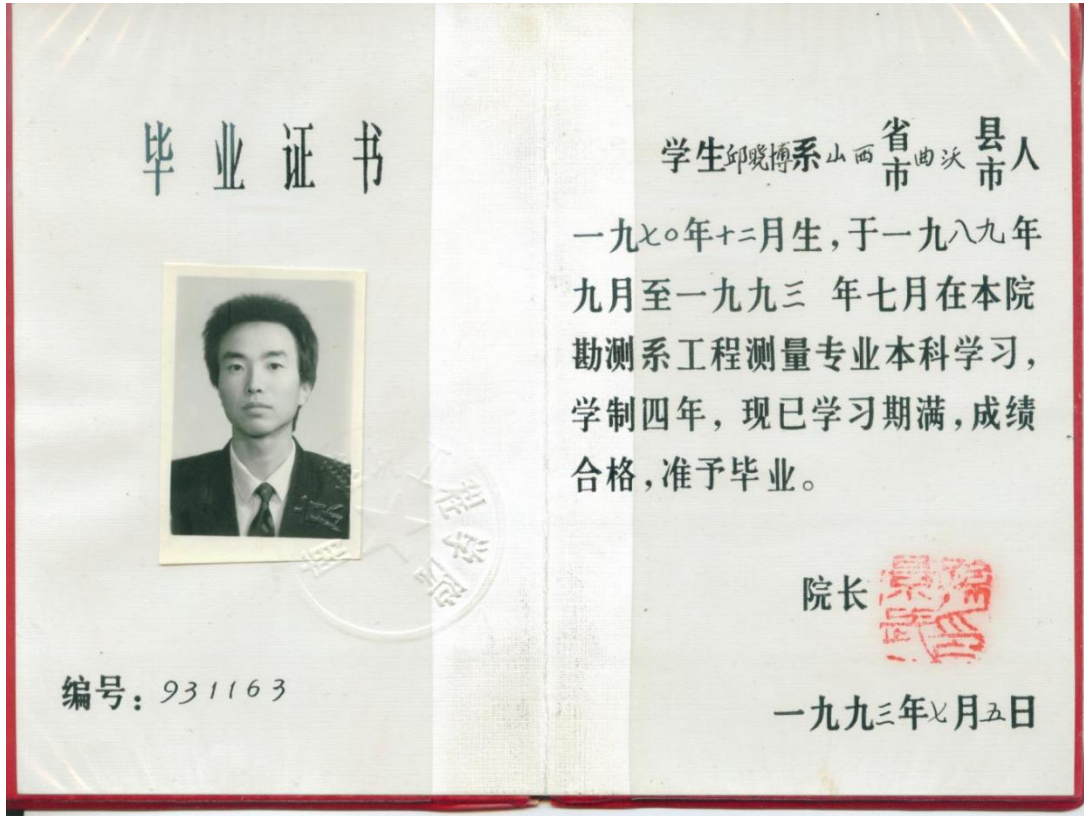 毕业证书
编号：931163
学生邱晓博系山西省市曲沃县市人
一九七〇年十二月生，于一九八九年
九月至一九九三 年七月在本院
勘测系工程测量专业本科学习，
学制四年，现已学习期满，成绩
合格，准予毕业。
院长
一九九三年七月五日